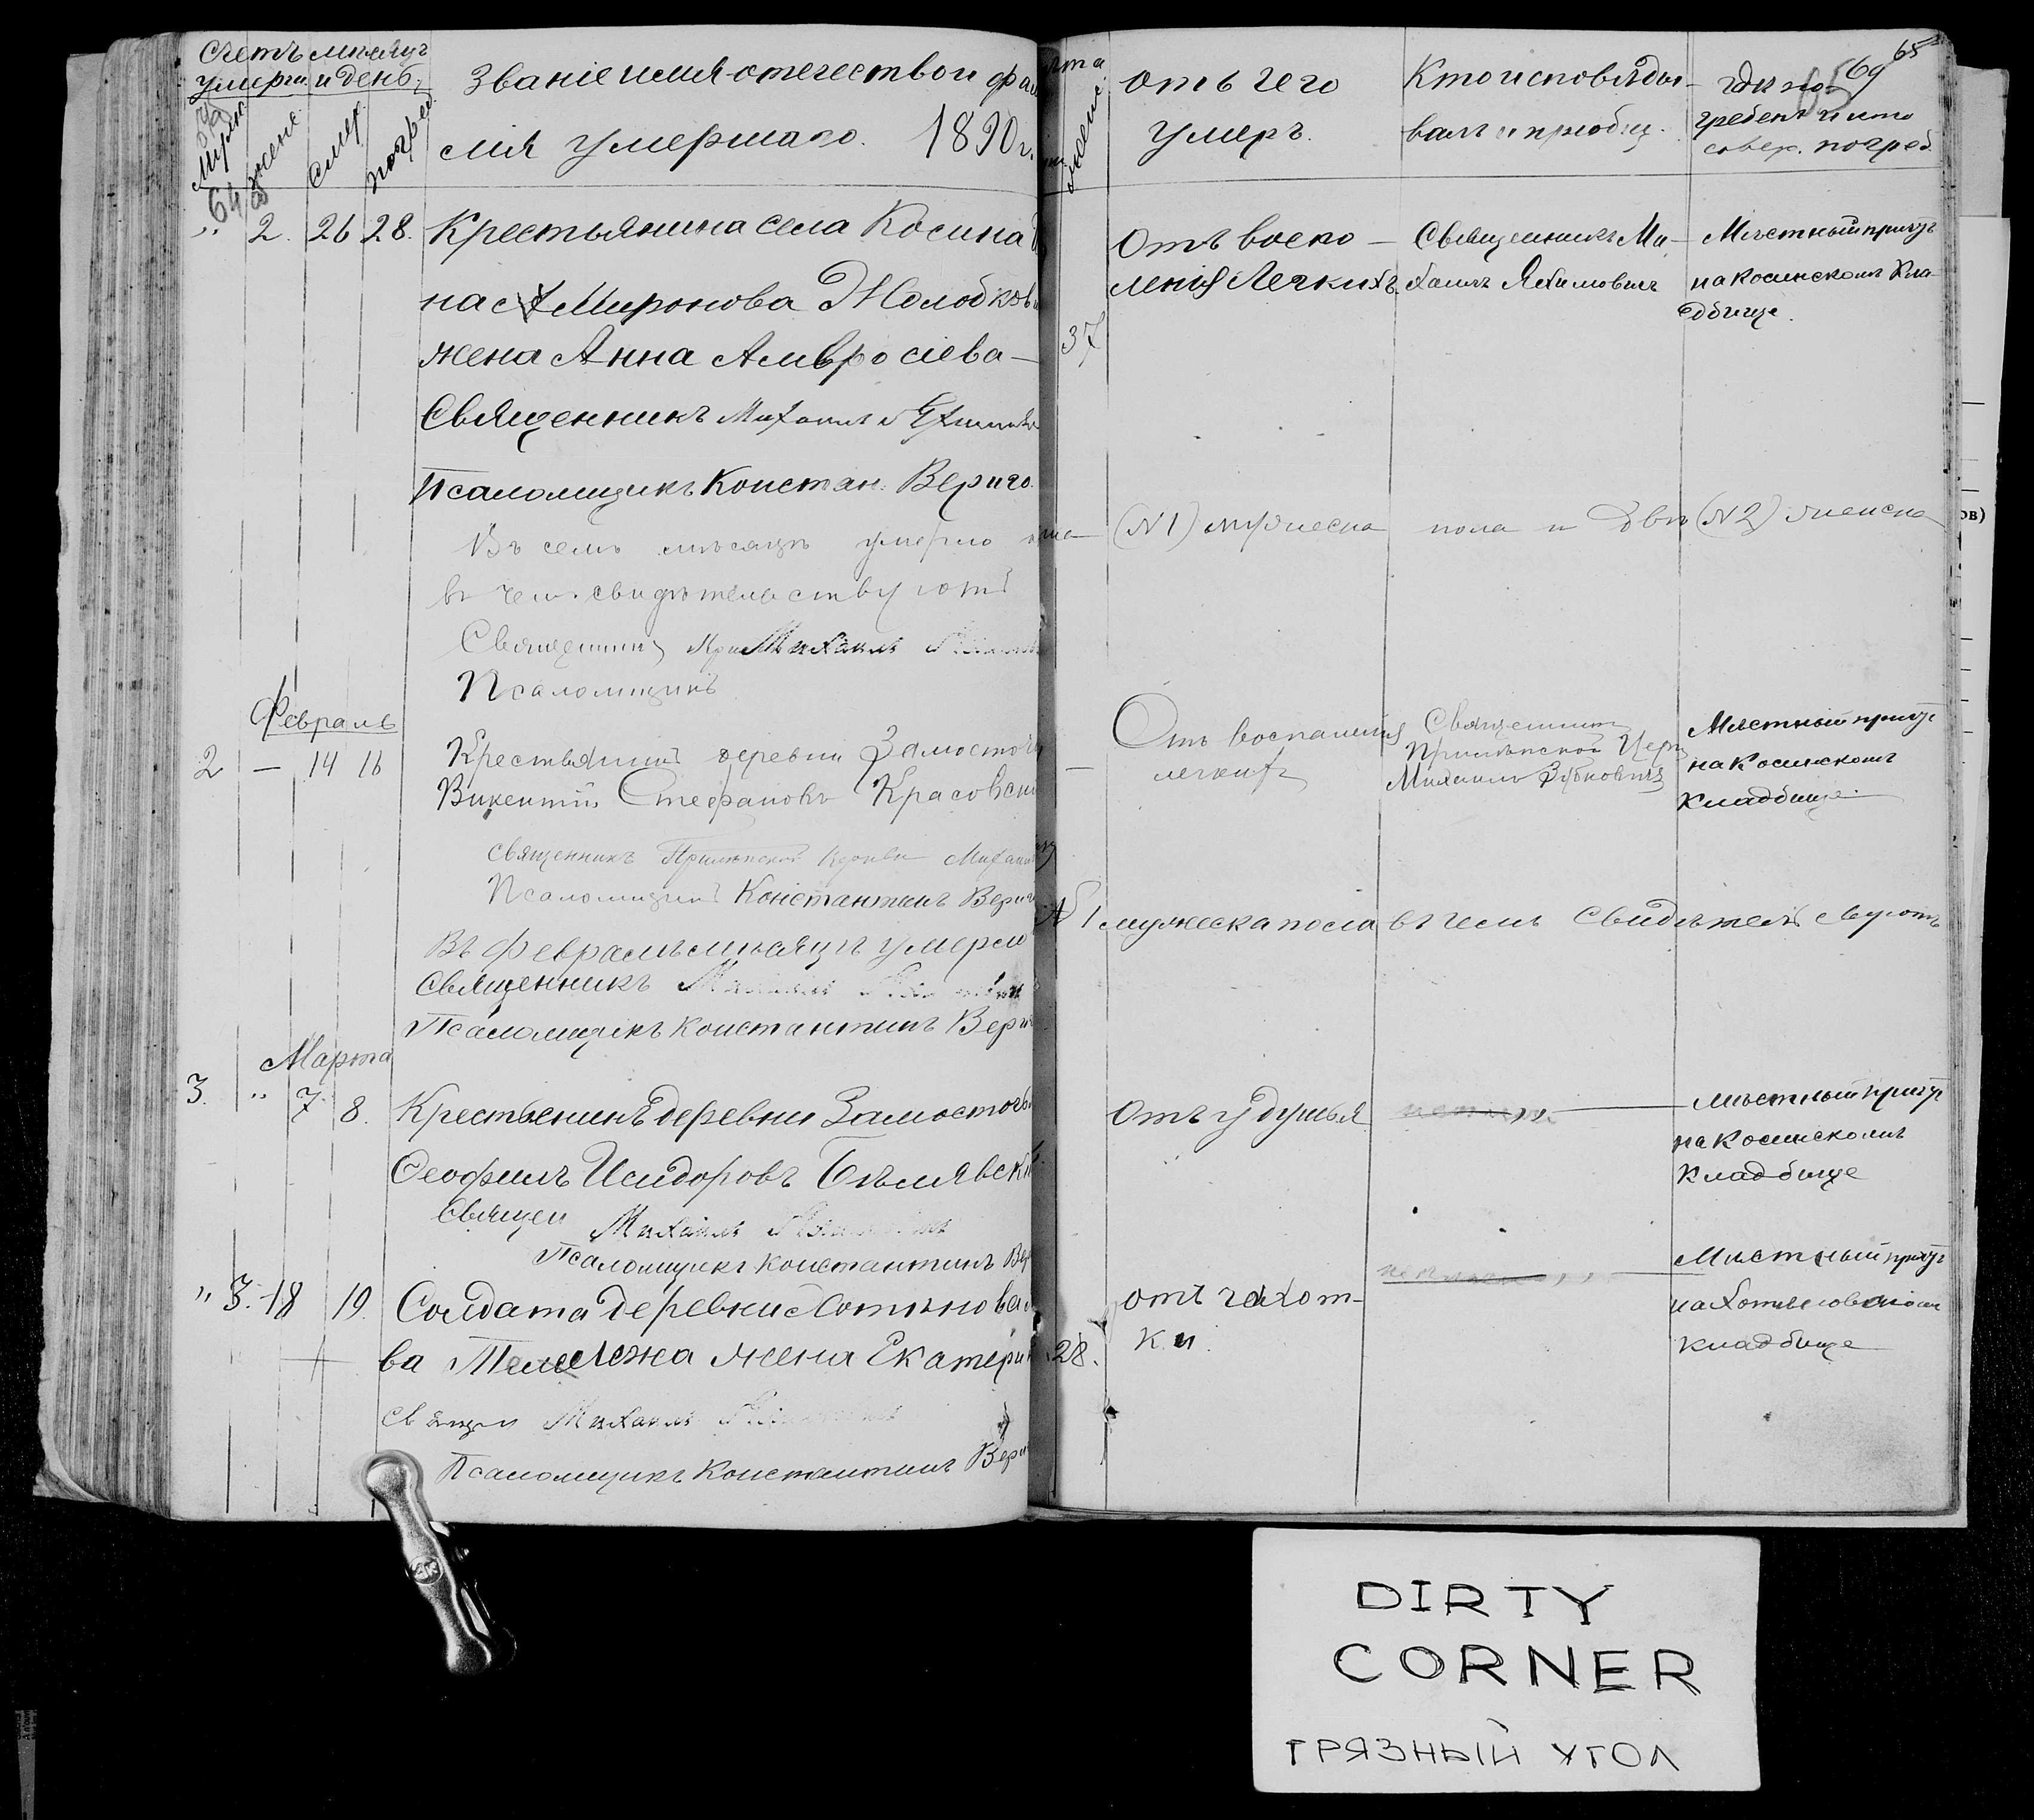 Счетъ мѣсяцъ
умерш. и день
Званіе имя отечество и фам
мія умершаго. 1890 г.
муж
жене
смер
погреб
лѣта
женс.
отъ чего
умеръ.
Кто исповѣды-
валъ и пріобщ.
гдѣ по-
гребенъ и кто
совер. погреб.
69
65
64
„ 2. 26 28. Крестьянина села Косина
на Миронова Жолобков
жена Анна Амвросіева —
37
Отъ воспо —
ленія Легкихъ.
Священникъ Ми-
хаилъ Яхимовичъ
Мѣстный причтъ
на Косинскомъ Кла-
дбище.
Священникъ Михаилъ
Псаломщикъ Констан. Вериго.
Въ семъ мѣсяцѣ умерло (№1) мужеска пола и двѣ (№2) женска
въ чемъ свидѣтельствуютъ
Священникъ Михаилъ
Псаломщикъ
Февраль
2 — 14 16 Крестьянинъ деревни Замосточ
Викентій Стефановъ Красовск
Отъ воспаленія
легкихъ
Священникъ
Церк
Михаилъ
Мѣстный причтъ
на Косинскомъ
Кладбище
священникъ Михаил
Псаломщикъ Константинъ Вериг
Въ Февралѣ мѣсяцѣ умерло №1 мужеска пола въ чемъ Свидѣтельствуютъ
Священникъ Михаилъ
Псаломщикъ Константинъ Вери
Марта
3. „ 7 8. Крестьенинъ деревни Замосточь
Ѳеофилъ Исидоровъ Бѣлявскі
Отъ удушья
Мѣстный причтъ
на Косинскомъ
Кладбище
Священ Михаилъ
Псаломщикъ Константинъ Вер
„ 3. 18 19. Солдата деревни
ва жена Екатери
28.
отъ чахот-
ки.
Мѣстный причтъ
на
кладбище
Михаилъ
Псаломщикъ Константинъ Вери
DIRTY
CORNER
ГРЯЗНЫЙ УГОЛ